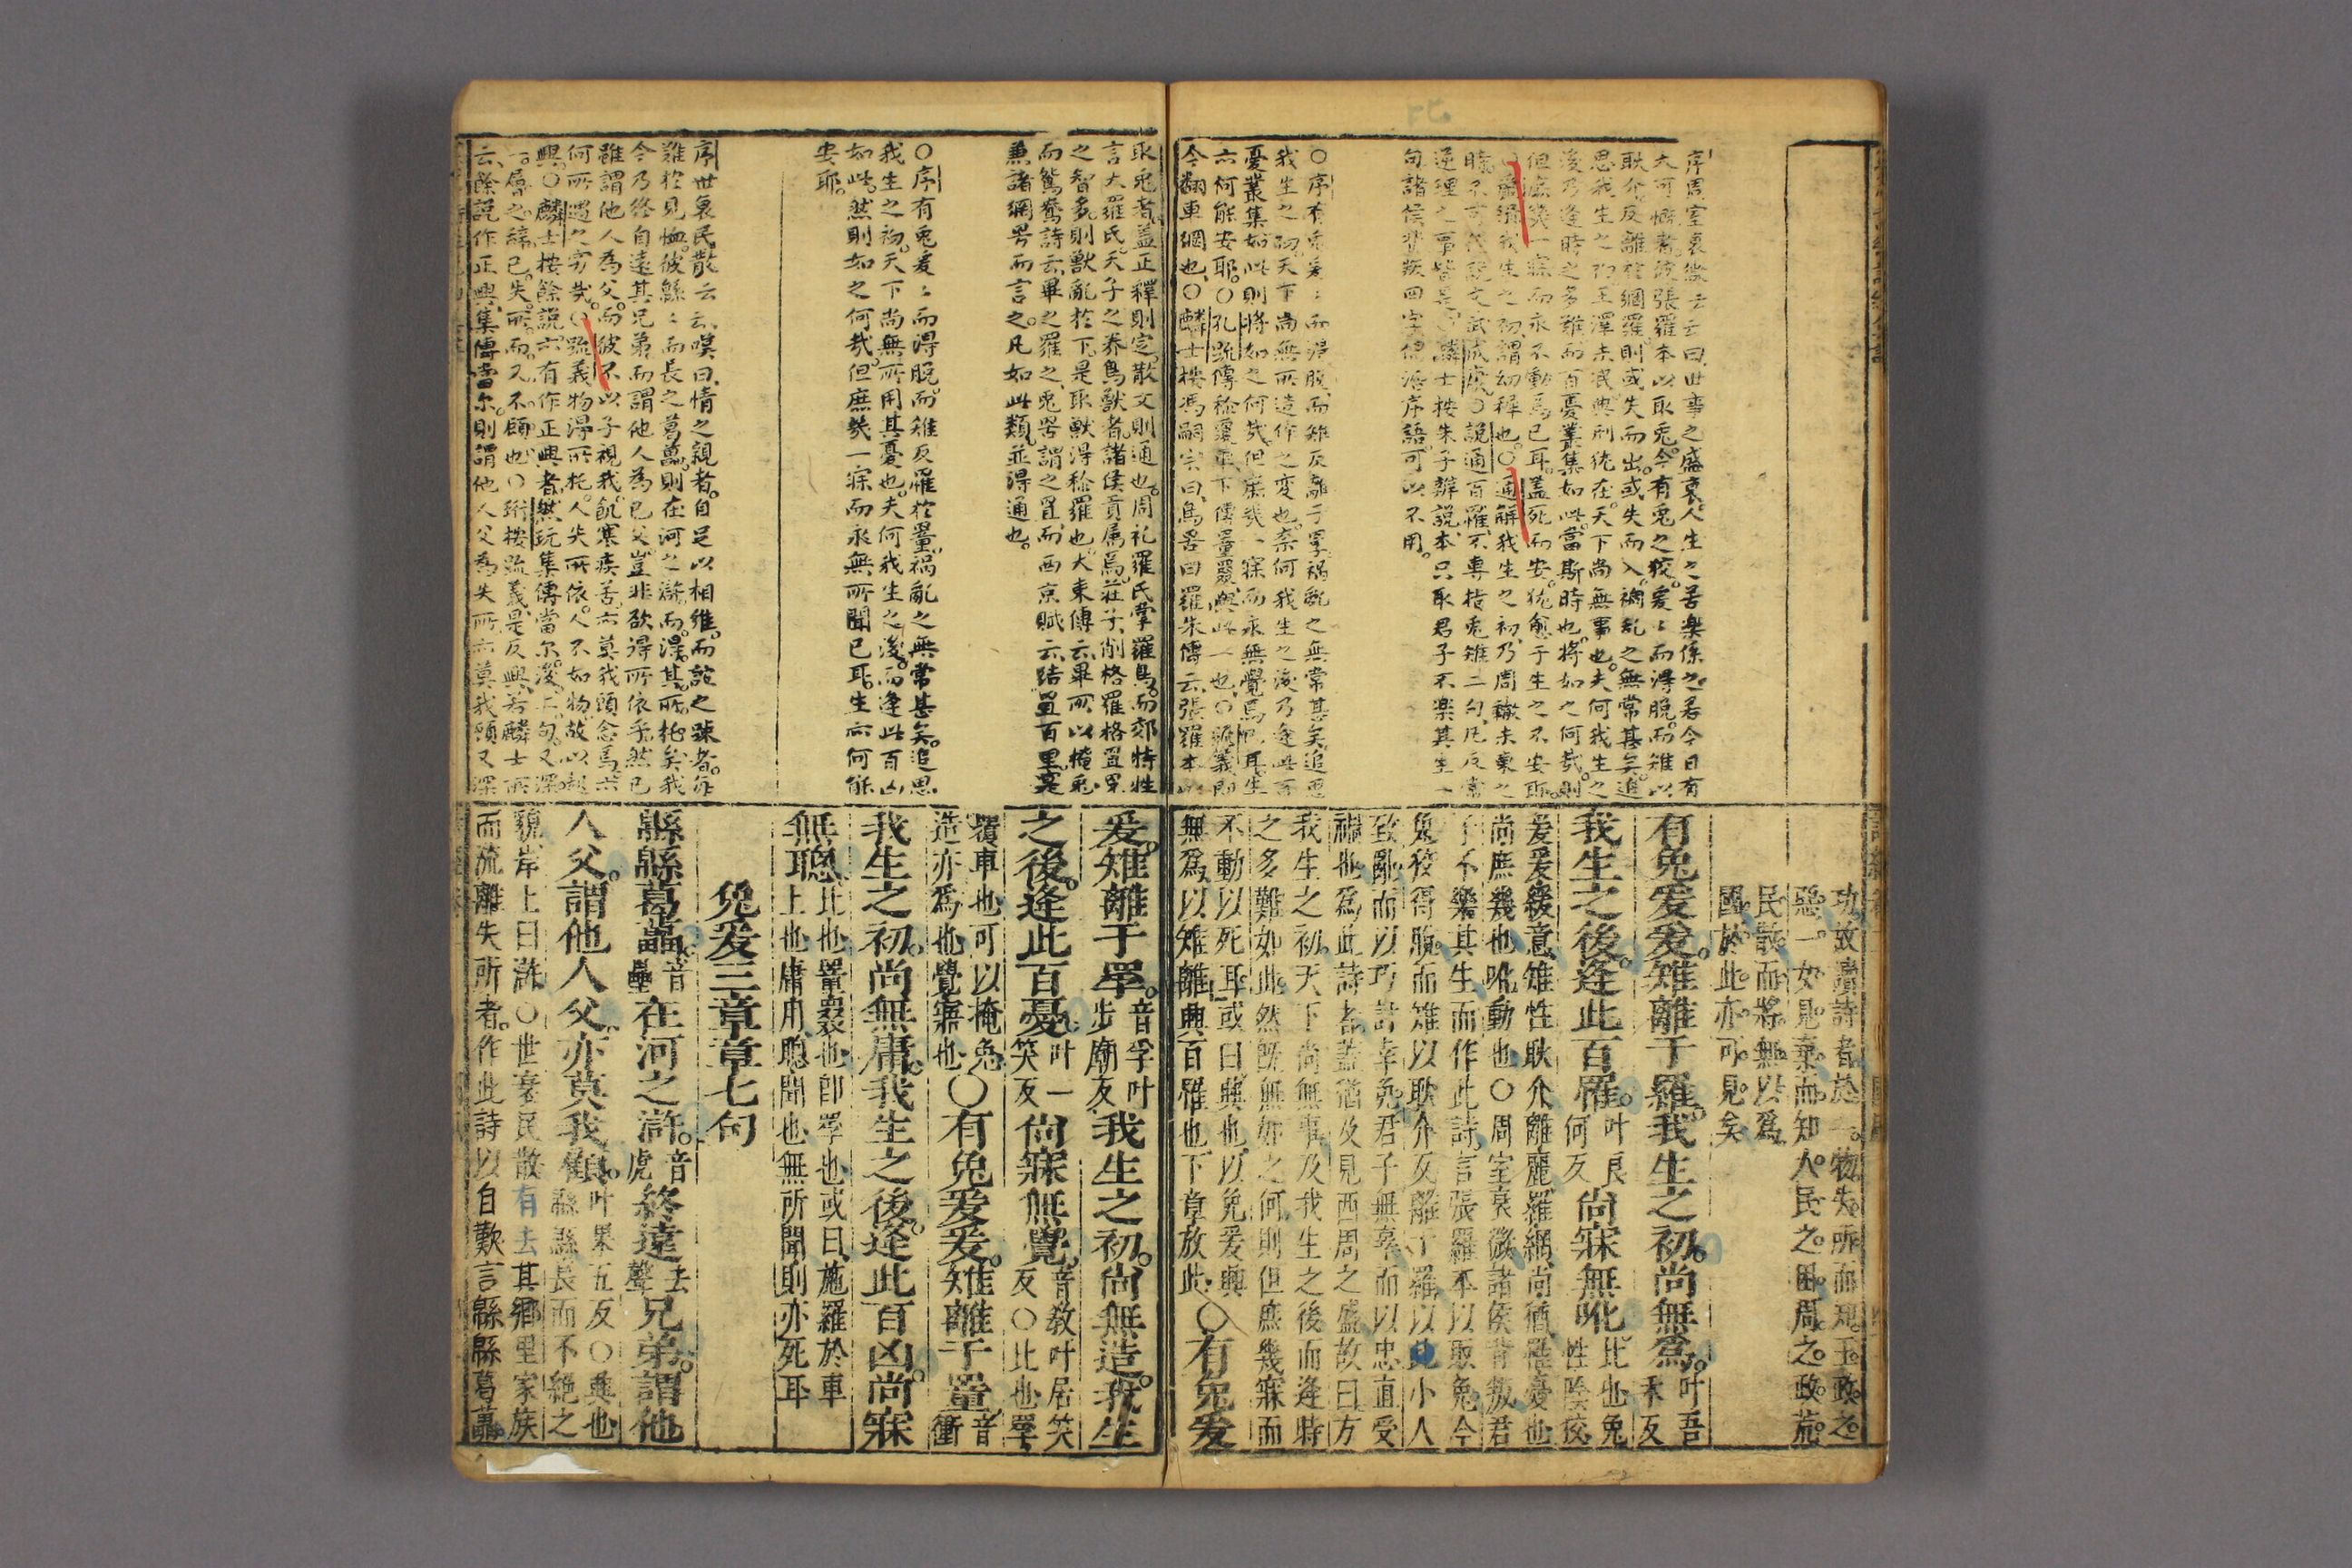 功故讀詩者於一物失所而知王政之
惡一女見棄而知人民之困周之政荒
民散而將無以爲
國於此亦可見矣
有兔爰爰雉離于羅我生之初尚無爲叶吾禾反
我生之後逢此百罹叶良何反尚寐無吪比也兔性陰狡
爰爰緩意雉性耿介離麗羅網尚猶罹憂也
尚庶幾也吪動也○周室衰微諸侯背叛君
子不樂其生而作此詩言張羅本以取兔今
兔狡得脫而雉以耿介反離于羅以比小人
致亂而以巧計幸免君子無辜而以忠直受
禍也爲此詩者蓋猶及見西周之盛故曰方
我生之初天下尚無事及我生之後而逢時
之多難如此然旣無如之何則但庶幾寐而
不動以死耳或曰興也以兔爰興
無爲以雉離興百罹也下章放此○有兔爰
爰雉離于罦音孚叶步廟反我生之初尚無造我生
之後逢此百憂叶一笑反尚寐無覺音敎叶居笑反○比也罦
覆車也可以掩兔
造亦爲也覺寤也○有兔爰爰雉離于罿音衝
我生之初尚無庸我生之後逢此百凶尚寐
無聰比也罿罬也卽罦也或曰施羅於車
上也庸用聰聞也無所聞則亦死耳
兔爰三章章七句
緜緜葛藟音壘在河之滸音虎終遠去聲兄弟謂他
人父謂他人父亦莫我顧叶果五反○興也緜緜長而不絶之
貌岸上曰滸○世衰民散有去其鄉里家族
而流離失所者作此詩以自歎言緜緜葛藟
序周室衰微云云曰世事之盛衰人生之苦樂係之若今日有
大可慨者彼張羅本以取兔今有兔之狡爰ミ而得脫而雉以
耿介反離於網羅則或失而出或失而入禍亂之無常甚矣追
思我生之初王澤未泯典刑猶在天下尚無事也夫何我生之
後乃逢時之多難而百憂叢集如此當斯時也將如之何哉則
但庶幾一寐而永不動焉已耳蓋死而安猶愈于生之不安耶
逆理之事皆是○麟士按朱子辨說本只取君子不樂其生一
句諸侯背叛四字僞添序語可以不用
○序有兔爰ミ而得脫而雉反離于罦禍亂之無常甚矣追思
我生之初天下尚無所造作之變也奈何我生之後乃逢此百
憂叢集如此則將如之何哉但庶幾一寐而永無覺焉已耳生
亦何能安耶○孔疏傳稱覆車下傳罿罬與此一也○疏義即
今翻車網也○麟士按馮嗣宗曰鳥罟曰羅朱傳云張羅本以
取兔者蓋正釋則定散文則通也周礼羅氏掌羅鳥而郊特性
言大羅氏天子之养鳥獸者諸侯貢属焉莊子削格羅格罝罘
之智多則獸亂於下是取獸得称羅也大東傳云畢所以掩兔
而鴛鴦詩云畢之羅之兎罟謂之罝而西京賦云結罝百里遠
兼諸網罟而言之凡如此類並得通也
○序有兎爰ミ而得脫而雉反罹於罿禍亂之無常甚矣追思
我生之初天下尚無所用其憂也夫何我生之後而逢此百凶
如此然則如之何哉但庶幾一寐而永無所聞已耳生亦何能
安耶
序世衰民散云云嘆曰情之親者自足以相維而誼之疎者每
難於見恤彼緜ミ而長之葛藟則在河之滸而得其所托矣我
今乃終自遠其兄弟而謂他人為已父豈非欲得所依乎然已
雖謂他人為父而彼不以子視我飢寒疾苦亦莫我顧念焉亦
何所遇之窮哉○疏義物得所托人失所依人不如物故以起
興○麟士按餘說亦有作正興者然玩集傳當尔後二句又深
一層之辭已失所而又不顧也○珩按疏義是反興若麟士所
云餘說作正興集傳當尔則謂他人父為失所亦莫我顧又深